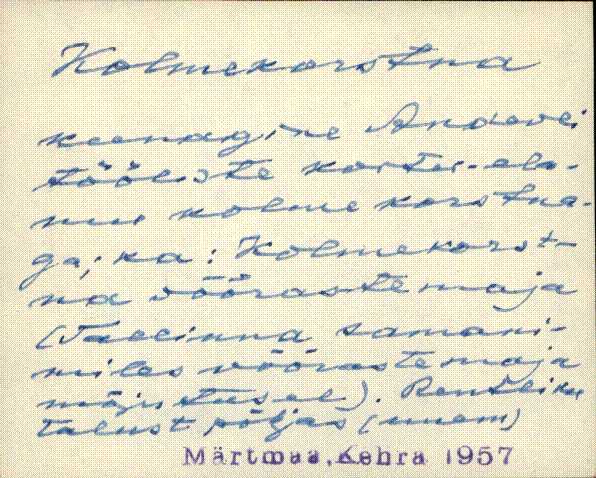 Kolmekorstna
keenagine Anderei
tööliste korter-ela-
mu kolme korstna-
ga; ka: Kolmekorst-
na võõrastemaja
(Tallinna samani-
miles võõrastemaja
mõjutusel). Rentleiku
talust põhjas (mem)
Märtmaa, Kehra 1957